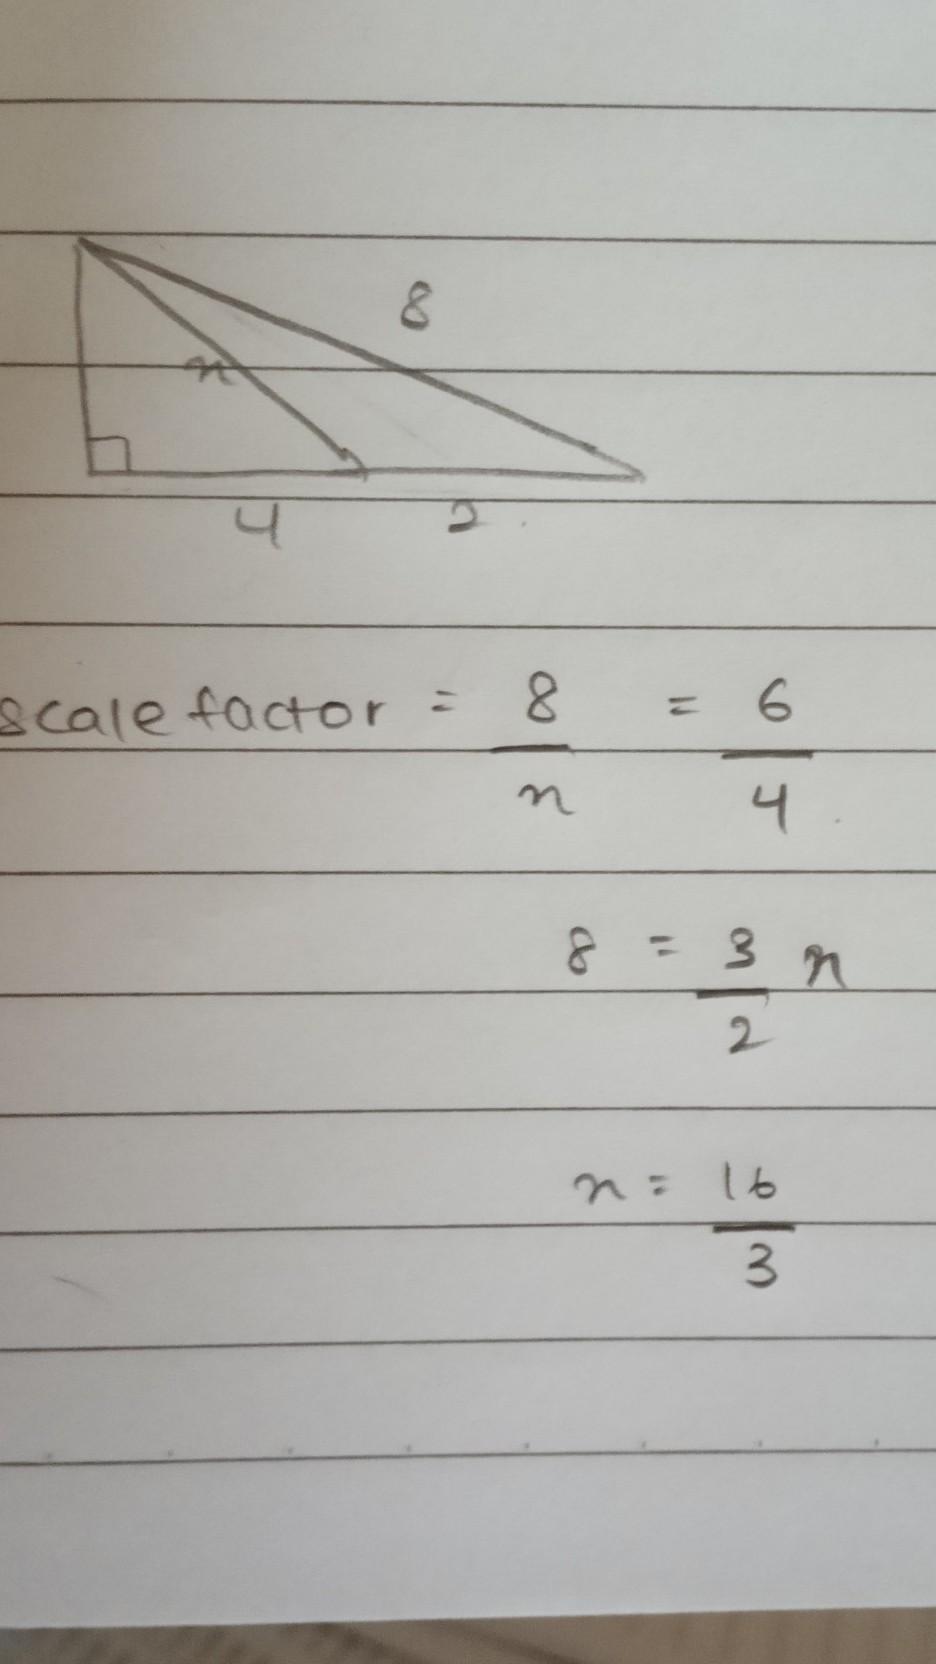 8
n
4 2
scale factor = 8/n = 6/4
8 = 3/2 n
n = 16/3